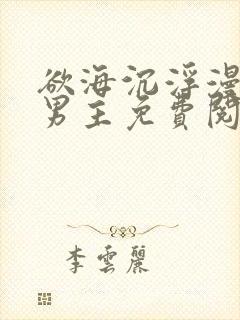 欲海沉浮漫
男主免費閱
李雲麗